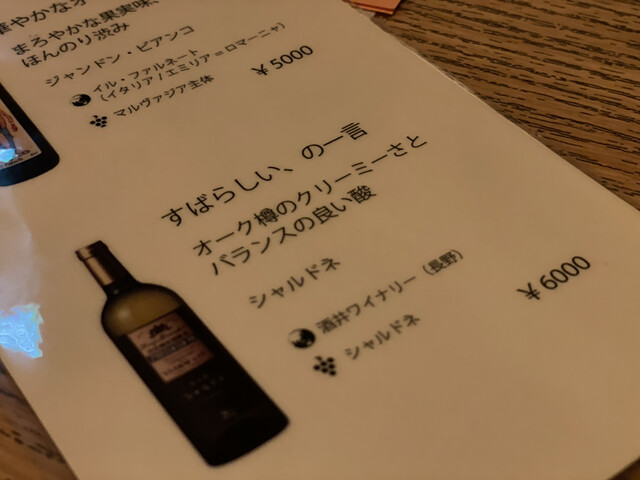 まろやかな果実味、
ほんのり渋み
ジャンドン・ビアンコ
イル・ファルネート
(イタリア/エミリア=ロマーニャ)
マルヴァジア主体
¥5000
すばらしい、の一言
オーク樽のクリーミーさと
バランスの良い酸
シャルドネ
酒井ワイナリー(長野)
シャルドネ
¥6000